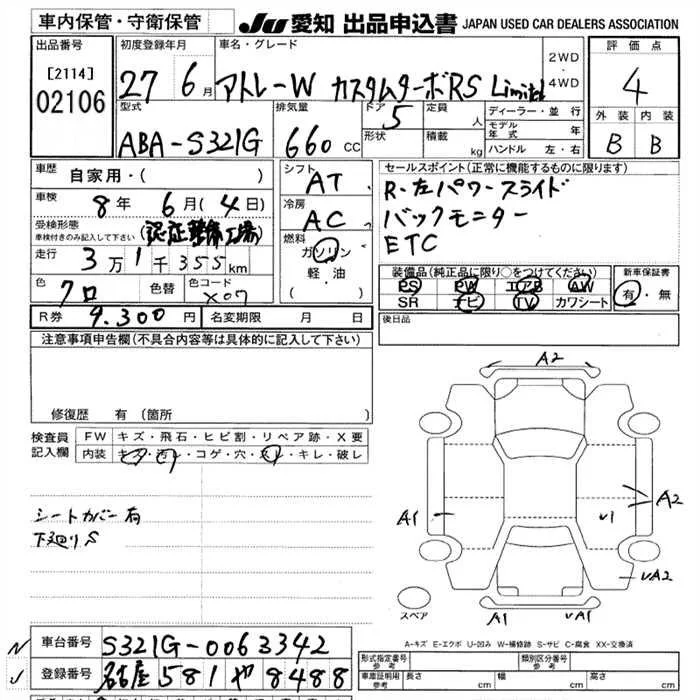 車内保管・守衛保管
JU 愛知 出品申込書 JAPAN USED CAR DEALERS ASSOCIATION
出品番号 初度登録年月 車名・グレード 2WD・4WD 評価点
[2114]
02106 27 6月 アトレーW カスタムターボRS Limited 4
型式 排気量 ドア 定員 ディーラー・並行 外装 内装
ABA-S321G 660 CC 5 人 モデル年式 年 B B
形状 積載 kg ハンドル 左・右
車歴 自家用・( ) シフト AT セールスポイント(正常に機能するものに限ります)
車検 8年 6月(4日) 冷房 AC R・左パワースライド
受検形態 車検付きのみ記入して下さい (認証整備工場) バックモニター
燃料 ガソリン ETC
走行 3万1千355km 軽・油 ( )
装備品(純正品に限り○をつけてください) 新車保証書
PS PW エアB AW 有・無
色 クロ 色替 色コード X07 SR ナビ TV カワシート
R券 9.300円 名変期限 月 日 後日品
注意事項申告欄(不具合内容等は具体的に記入して下さい)
修復歴 有(箇所 )
検査員記入欄 FW キズ・飛石・ヒビ割・リペア跡・X要
内装 キズ・汚レ・コゲ・穴・スレ・キレ・破レ
シートカバー有
下廻りS
A2
A1 U1 A2
UA2
スペア A1 UA1
A-キズ E-エクボ U-凹み W-補修跡 S-サビ C-腐食 XX-交換済
N 車台番号 S321G-0063342
J 登録番号 名古屋 581 や 8488
形式指定番号 参考 類別区分番号 参考
車庫証明用 参考 長さ cm 幅 cm 高さ cm